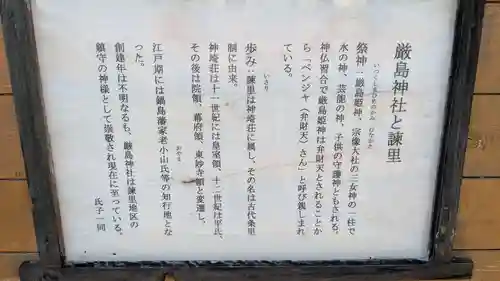 厳島神社と諫里
いつくしまひめのかみ　むなかた
祭神：厳島姫神、宗像大社の三女神の一柱で
水の神、芸能の神、子供の守護神ともされる。
神仏習合で厳島姫神は弁財天とされることか
ら「ベンジャ（弁財天）さん」と呼び親しまれ
ている。
いさり
歩み：諫里は神埼荘に属し、その名は古代条里
制に由来。
神埼荘は十一世紀には皇室領、十二世紀は平氏、
その後は院領、幕府領、東妙寺領と変遷し、
おやま
江戸期には鍋島藩家老小山氏等の知行地とな
った。
創建年は不明なるも、厳島神社は諫里地区の
鎮守の神様として崇敬され現在に至っている。
氏子一同